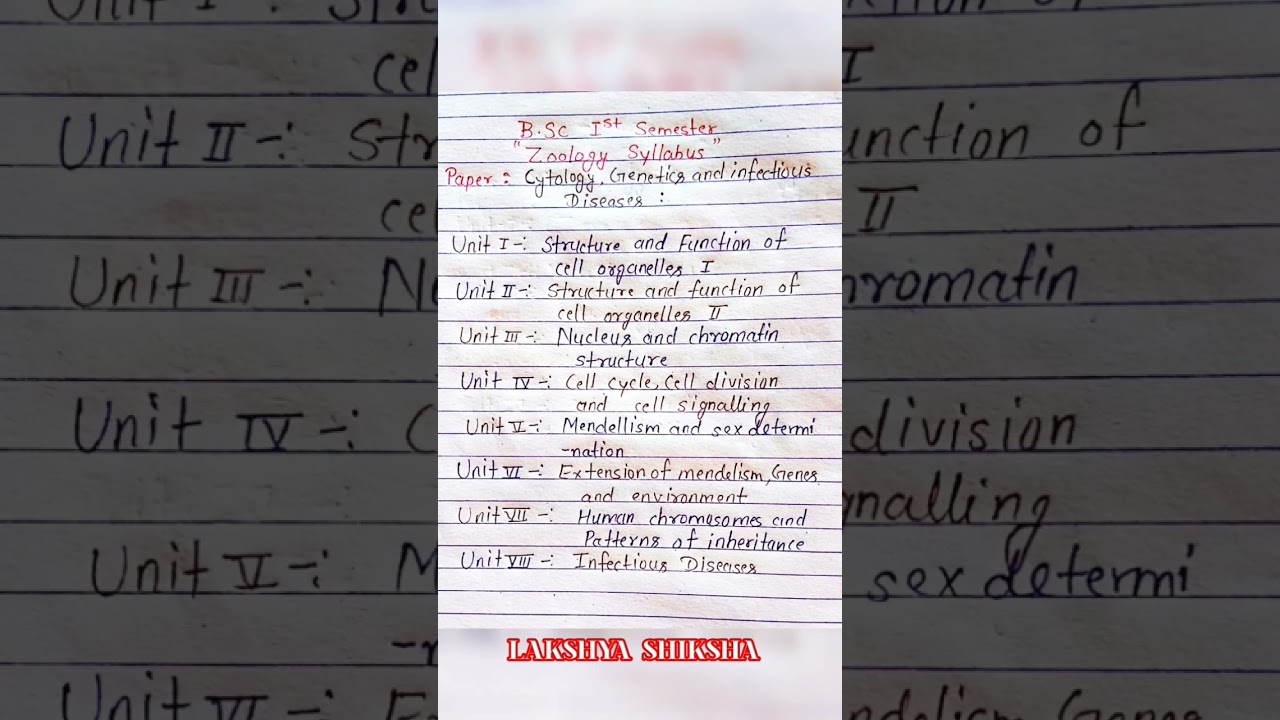 B.Sc Ist Semester
"Zoology Syllabus"
Paper : Cytology, Genetics and infectious
Diseases :
Unit I -: Structure and Function of
cell organelles I
Unit II -: Structure and function of
cell organelles II
Unit III -: Nucleus and chromatin
structure
Unit IV -: Cell cycle, Cell division
and cell signalling
Unit V -: Mendellism and sex determi
-nation
Unit VI -: Extension of mendelism, Genes
and environment
Unit VII -: Human chromosomes and
Patterns of inheritance
Unit VIII -: Infectious Diseases
LAKSHYA SHIKSHA